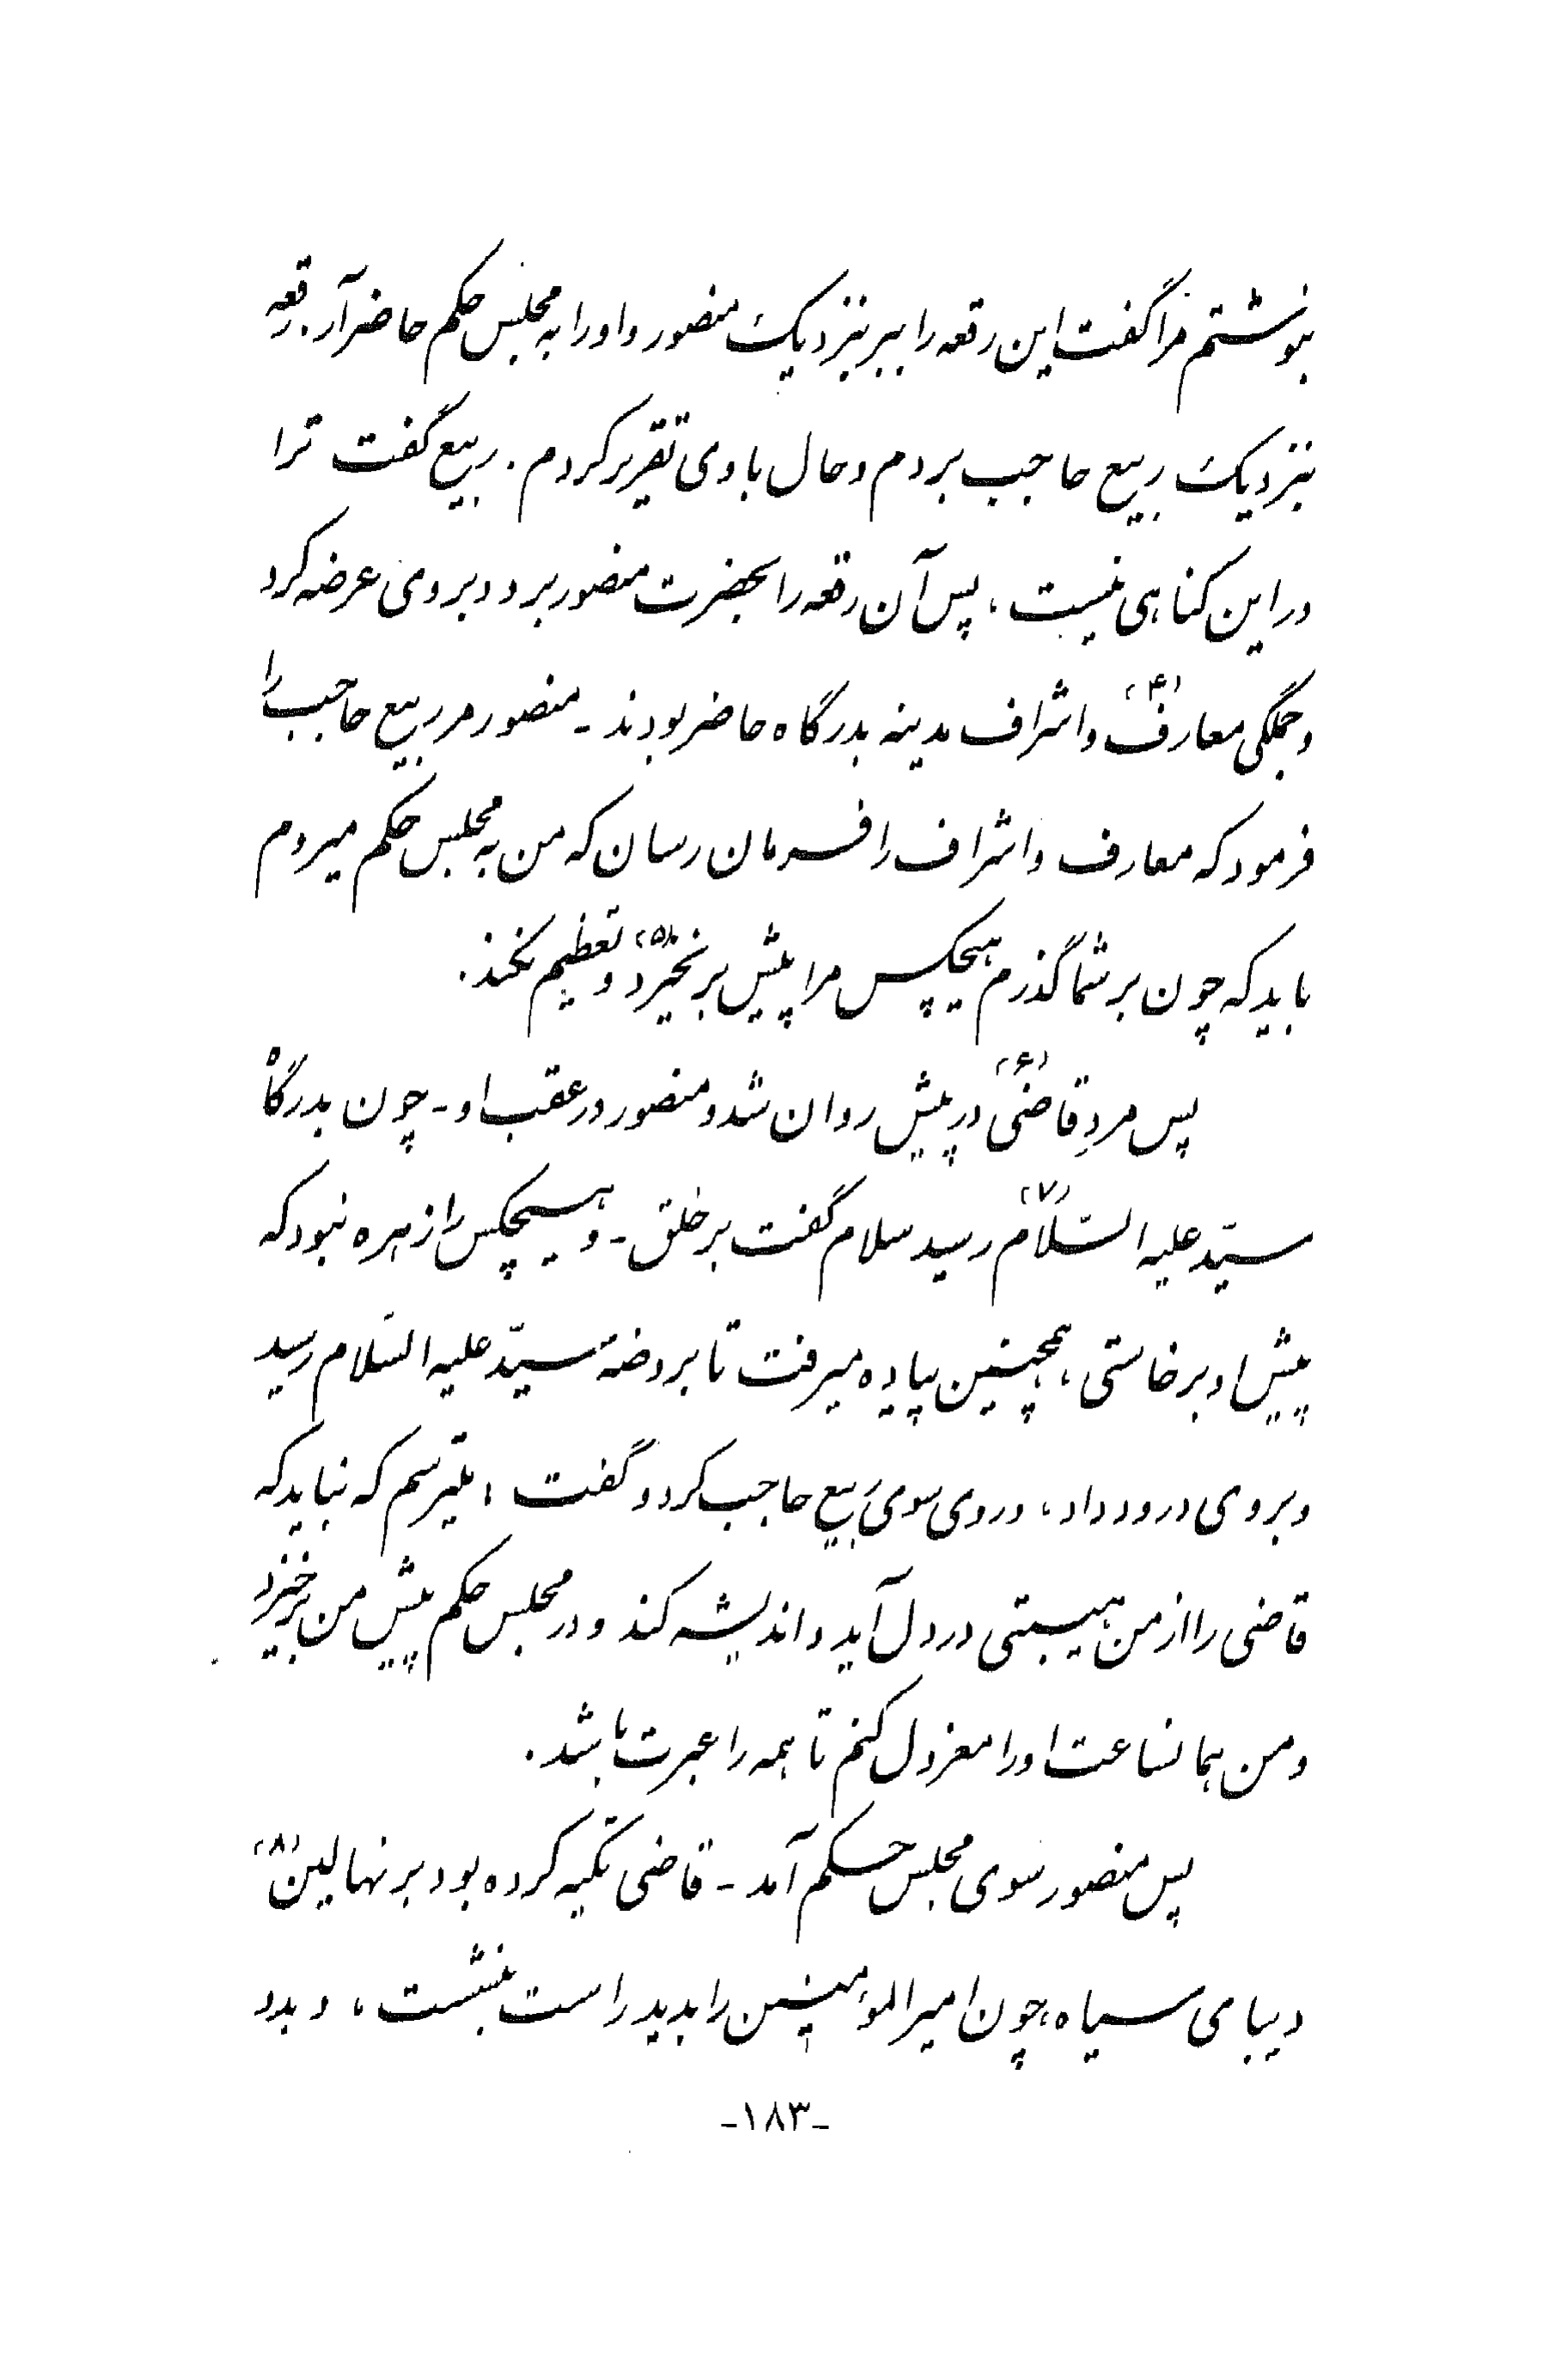 بنوشتم مرا گفت این رقعه را ببر بنزدیک منصور و او را به مجلس حکم حاضر آر. رقعه
بنزدیک ربیع حاجب بردم و حال با وی تقریر کردم. ربیع گفت ترا
در این گناهی نیست، پس آن رقعه را بحضرت منصور برد و بروی عرضه کرد
و جملگی معارف (۴) و اشراف مدینه بدرگاه حاضر بودند - منصور مر ربیع حاجب را
فرمود که معارف و اشراف را فرمان رسان که من به مجلس حکم میروم
باید که چون بر شما گذرم هیچکس مرا پیش برنخیزد (۵) و تعظیم نکند.
پس مردِ قاضی (۶) در پیش روان شد و منصور در عقب او - چون بدرگاه
سیّد علیه السّلام (۷) رسید سلام گفت بر خلق - و هیچکس را زهره نبود که
پیش او برخاستی، همچنین پیاده میرفت تا بروضهٔ سیّد علیه السّلام رسید
و بروی درود داد، و روی سوی ربیع حاجب کرد و گفت: میترسم که نباید که
قاضی را از من هیبتی در دل آید و اندیشه کند و در مجلس حکم پیش من برخیزد
و من همانساعت او را معزول کنم تا همه را عبرت باشد.
پس منصور سوی مجلس حکم آمد - قاضی تکیه کرده بود بر نهالین (۸)
دیبای سیاه، چون امیرالمؤمنین را بدید راست بنشست، و بدو
-۱۸۳-